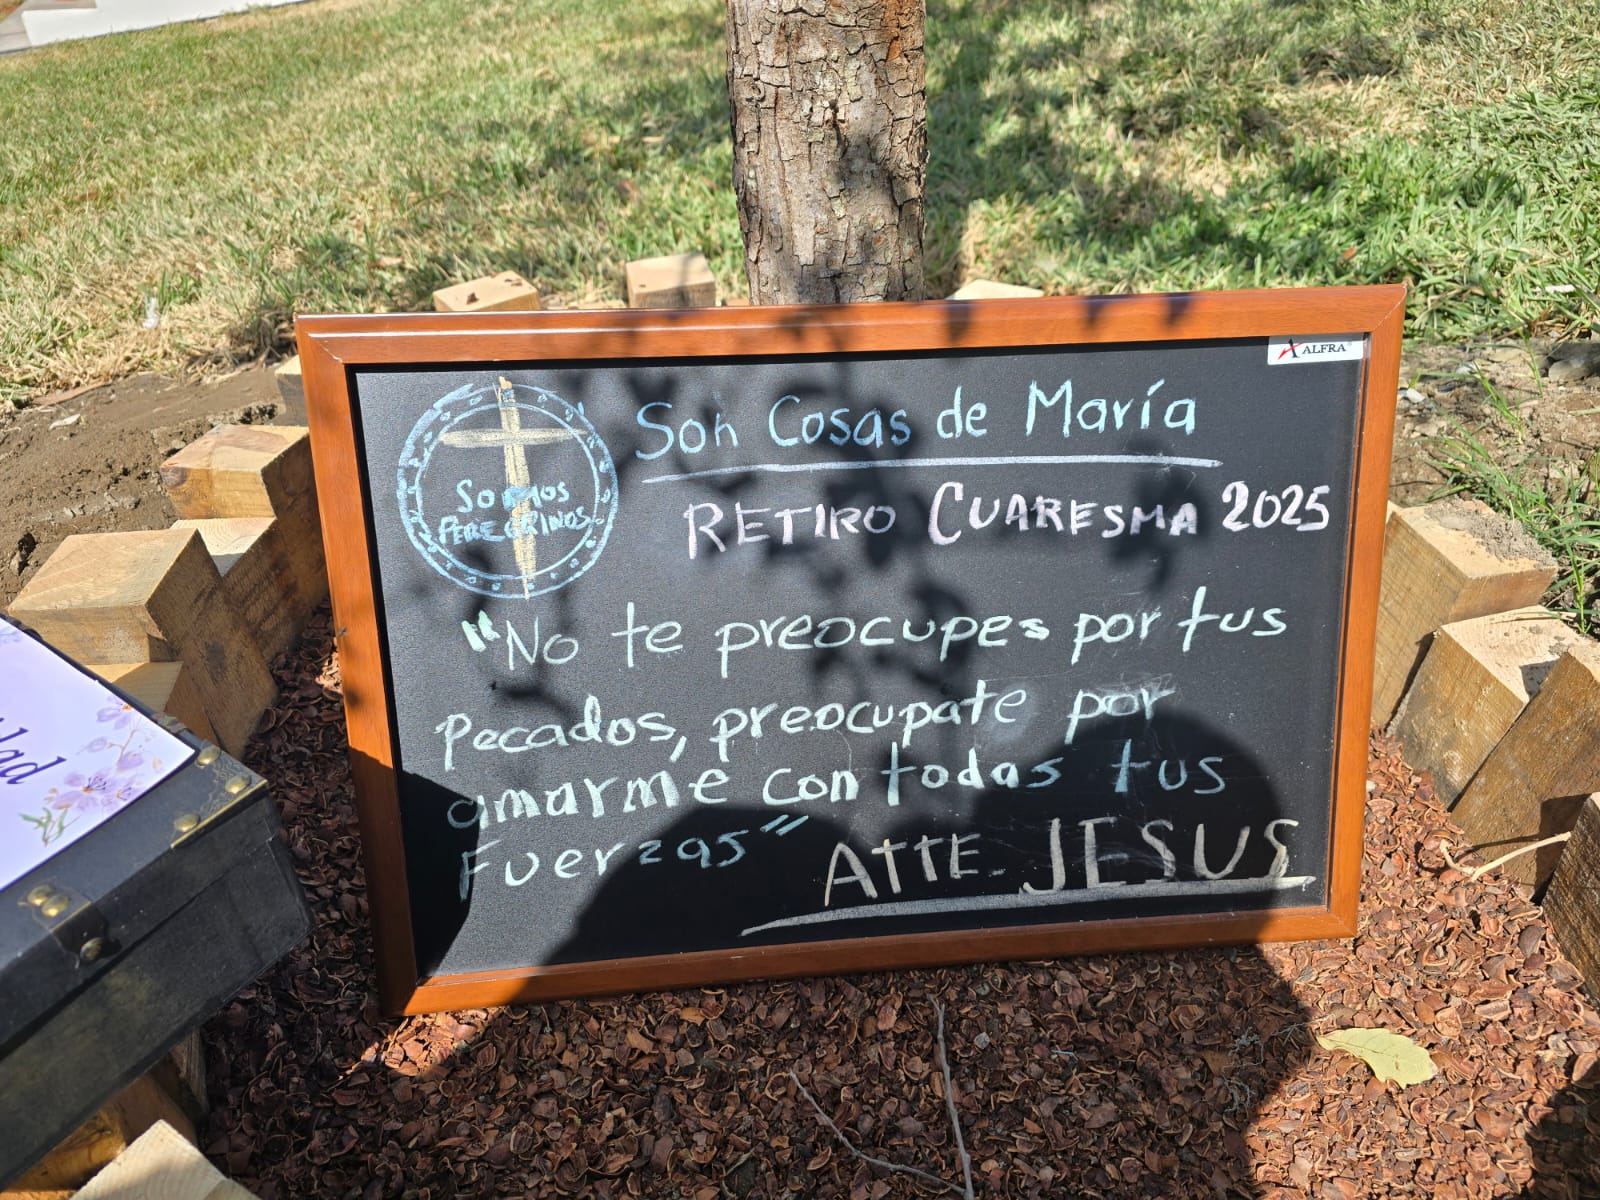 ALFRA
Son Cosas de María
SOMOS
PEREGRINOS
RETIRO CUARESMA 2025
"No te preocupes por tus
Pecados, preocupate por
amarme con todas tus
Fuerzas"
ATTE. JESUS